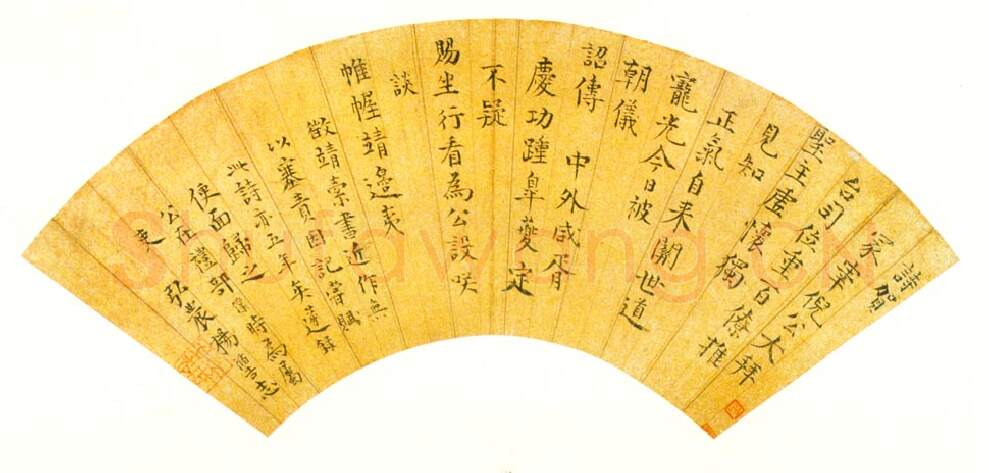 詩賀
冢宰倪公大拜
台司位重百僚推
聖主虛懷獨
見知
正氣自来關世道
寵光今日被
朝儀
詔傳
中外咸胥
慶功踵皐夔定
不疑
賜坐行看為公設咲
談
帷幄靖邊夷
徵靖索書近作無
以塞責因記舊賦
此詩亦五年矣遂録
便面歸之
公在禮部時為屬
吏
弘農楊志
Shufawang.CN